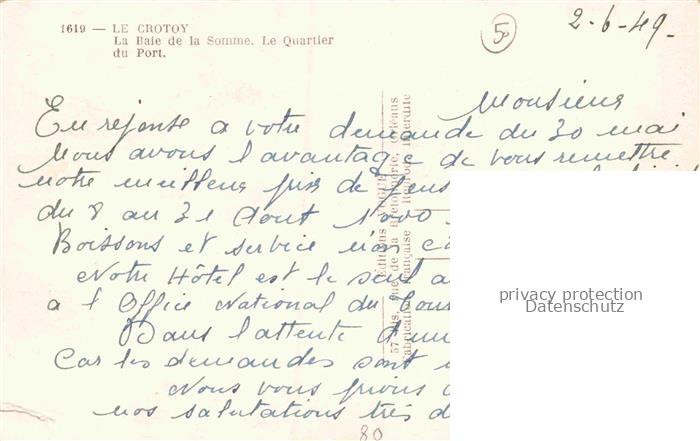 1619 — LE CROTOY
La Baie de la Somme. Le Quartier
du Port.
5
2-6-49-
Monsieur
En réponse a votre demande du 30 mai
Nous avons l'avantage de vous remettre
notre meilleur prix de
du 8 au 31 Aout 1000
Boissons et service non
Notre Hôtel est le seul
a l'Office National du
Dans l'attente d'une
Car les demandes sont
Nous vous prions
nos salutations très
80
57 bis, Rue de la Bretonnerie, Orléans
Fabrication Française Reprod. Interdite
privacy protection
Datenschutz